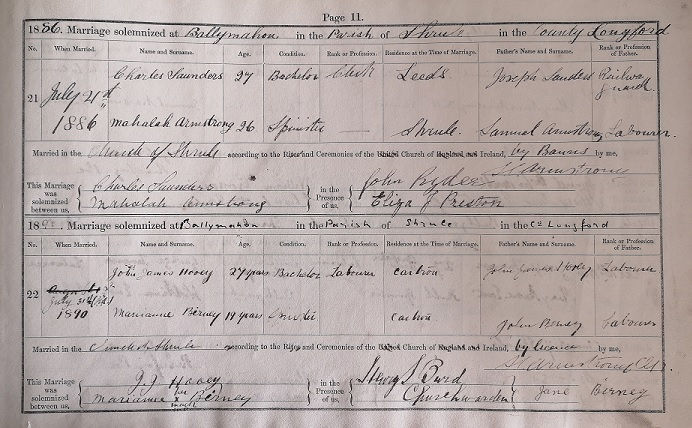 Page 11.
1886. Marriage solemnized at Ballymahon in the Parish of Shrule in the County Longford
No. When Married. Name and Surname. Age. Condition. Rank or Profession. Residence at the Time of Marriage. Father's Name and Surname. Rank or Profession of Father.
21 July 21st 1886 Charles Saunders 27 Bachelor Clerk Leeds Joseph Saunders Railway guard
Mahalah Armstrong 26 Spinster — Shrule Samuel Armstrong Labourer
Married in the Church of Shrule according to the Rites and Ceremonies of the United Church of England and Ireland, by Banns by me,
Armstrong
This Marriage was solemnized between us, Charles Saunders Mahalah Armstrong in the Presence of us, John Ryder Eliza J Preston
189 Marriage solemnized at Ballymahon in the Parish of Shrule in the Co Longford
No. When Married. Name and Surname. Age. Condition. Rank or Profession. Residence at the Time of Marriage. Father's Name and Surname. Rank or Profession of Father.
22 July 31st 1890 John James Hovey 27 years Bachelor Labourer John James Hovey Labourer
Marianne Berney 19 years Spinster John Berney Labourer
Married in the Church of Shrule according to the Rites and Ceremonies of the United Church of England and Ireland, by licence by me,
Armstrong
This Marriage was solemnized between us, J J Hovey Marianne her x mark Berney in the Presence of us, Churchwarden Jane Berney